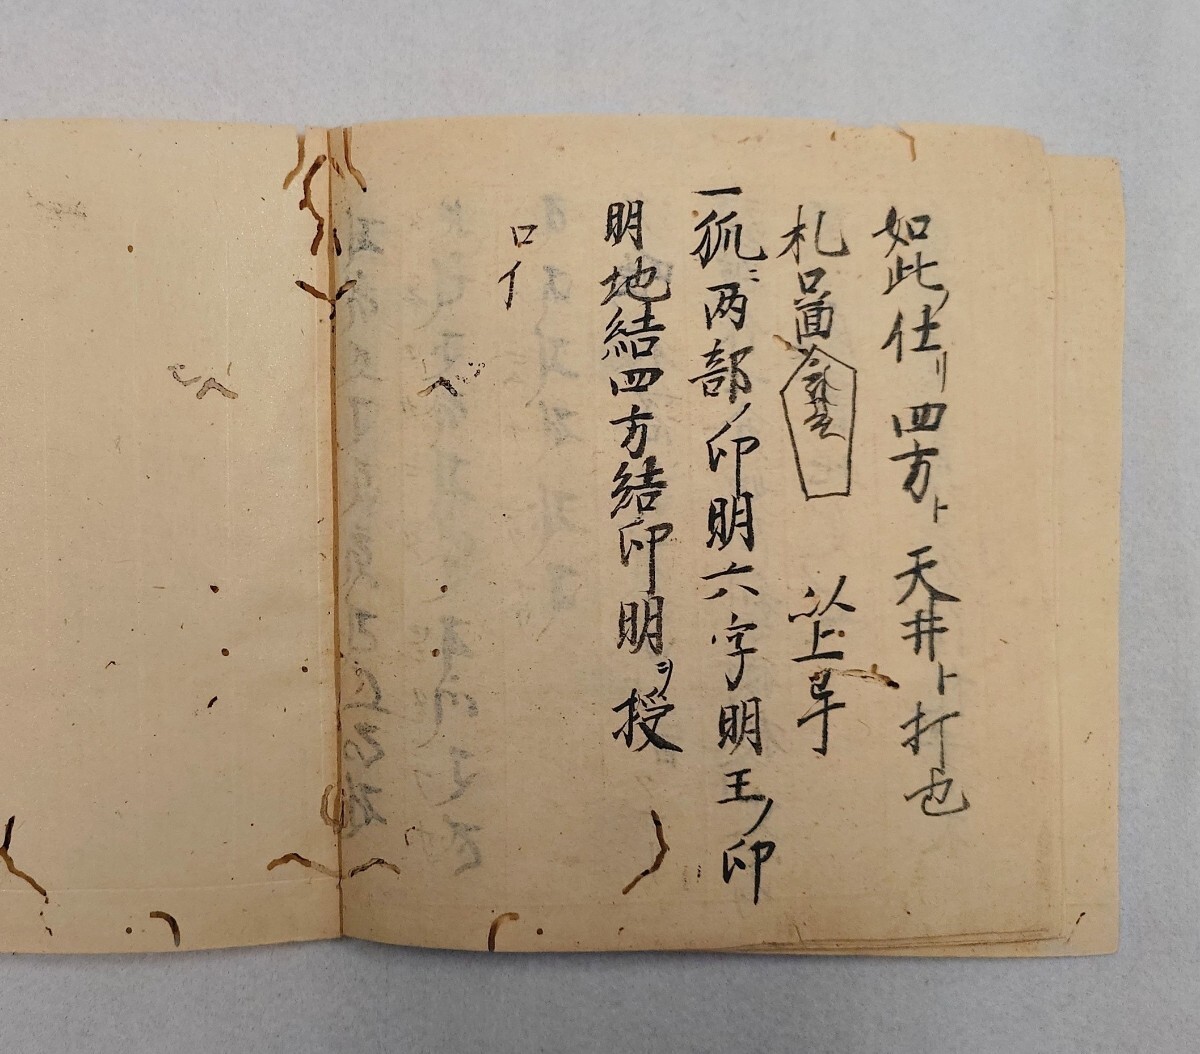 如此仕リ四方ト天井ト打也
札口面 以上
一狐ニ両部ノ印明六字明王ノ印
明地結四方結印明ヲ授
口イ